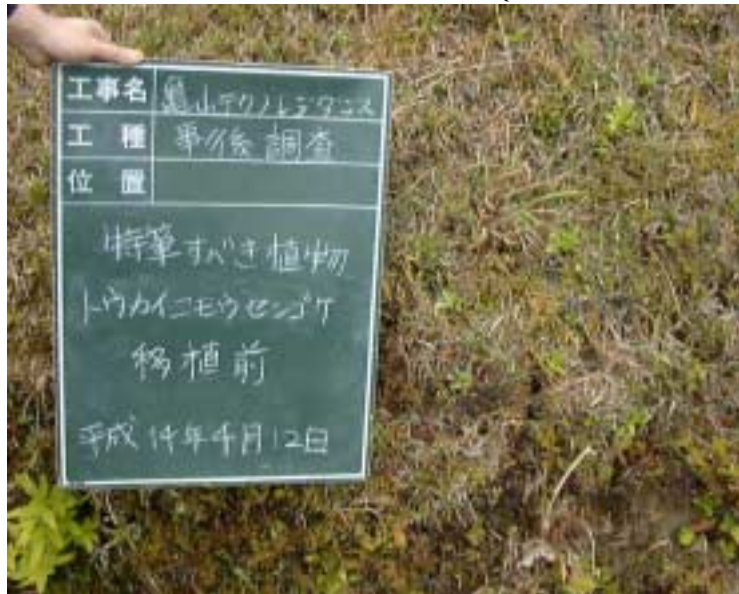 工事名 亀山テクノレジデンス
工種 事後調査
位置
特筆すべき植物
トウカイコモウセンゴケ
移植前
平成14年4月12日